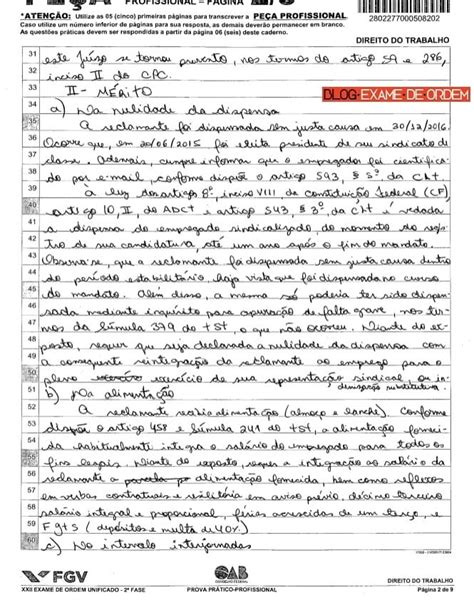 PEÇA PROFISSIONAL – PÁGINA 2/5
*ATENÇÃO: Utilize as 05 (cinco) primeiras páginas para transcrever a PEÇA PROFISSIONAL.
Caso utilize um número inferior de páginas para sua resposta, as demais deverão permanecer em branco.
As questões práticas devem ser respondidas a partir da página 06 (seis) deste caderno.
2802277000508202
DIREITO DO TRABALHO
BLOG EXAME DE ORDEM
31 este juízo se tornou prevento, nos termos do artigo 59 e 286,
32 inciso II do CPC.
33 II - MÉRITO
34 a) Da nulidade da dispensa
35 A reclamante foi dispensada sem justa causa em 30/12/2016.
36 Ocorre que, em 20/06/2015 foi eleita presidente de seu sindicato de
37 classe. Ademais, cumpre informar que o empregador foi cientifica-
38 do por e-mail, conforme dispõe o artigo 543, § 5º da CLT.
39 À luz dos artigos 8º, inciso VIII da Constituição Federal (CF)
40 artigo 10, II, do ADCT e artigo 543, § 3º, da CLT é vedada
41 a dispensa do empregado sindicalizado, do momento do regis-
42 tro de sua candidatura, até um ano após o fim do mandato.
43 Observa-se, que a reclamante foi dispensada sem justa causa dentro
44 do período estabilitário, haja vista que foi dispensada no curso
45 do mandato. Além disso, a mesma só poderia ter sido dispen-
46 sada mediante inquérito para apuração de falta grave, nos ter-
47 mos da Súmula 379 do TST, o que não ocorreu. Diante do ex-
48 posto, requer que seja declarada a nulidade da dispensa com
49 a consequente reintegração da reclamante ao emprego para o
50 pleno exercício de sua representação sindical, ou in-
denização substitutiva.
51 b) Da alimentação
52 A reclamante recebia alimentação (almoço e lanche). Conforme
53 dispõe o artigo 458 e Súmula 241 do TST, a alimentação forneci-
54 da habitualmente integra o salário do empregado para todos os
55 fins legais. Diante do exposto, requer a integração ao salário da
56 reclamante a parcela alimentação fornecida, bem como reflexos
57 em verbas contratuais e resilitória em aviso prévio, décimo terceiro
58 salário integral e proporcional, férias acrescidas de um terço, e
59 FGTS (depósitos e multa de 40%)
60 c) Do intervalo interjornadas
FGV
OAB
DIREITO DO TRABALHO
XXII EXAME DE ORDEM UNIFICADO - 2ª FASE
PROVA PRÁTICO-PROFISSIONAL
Página 2 de 9